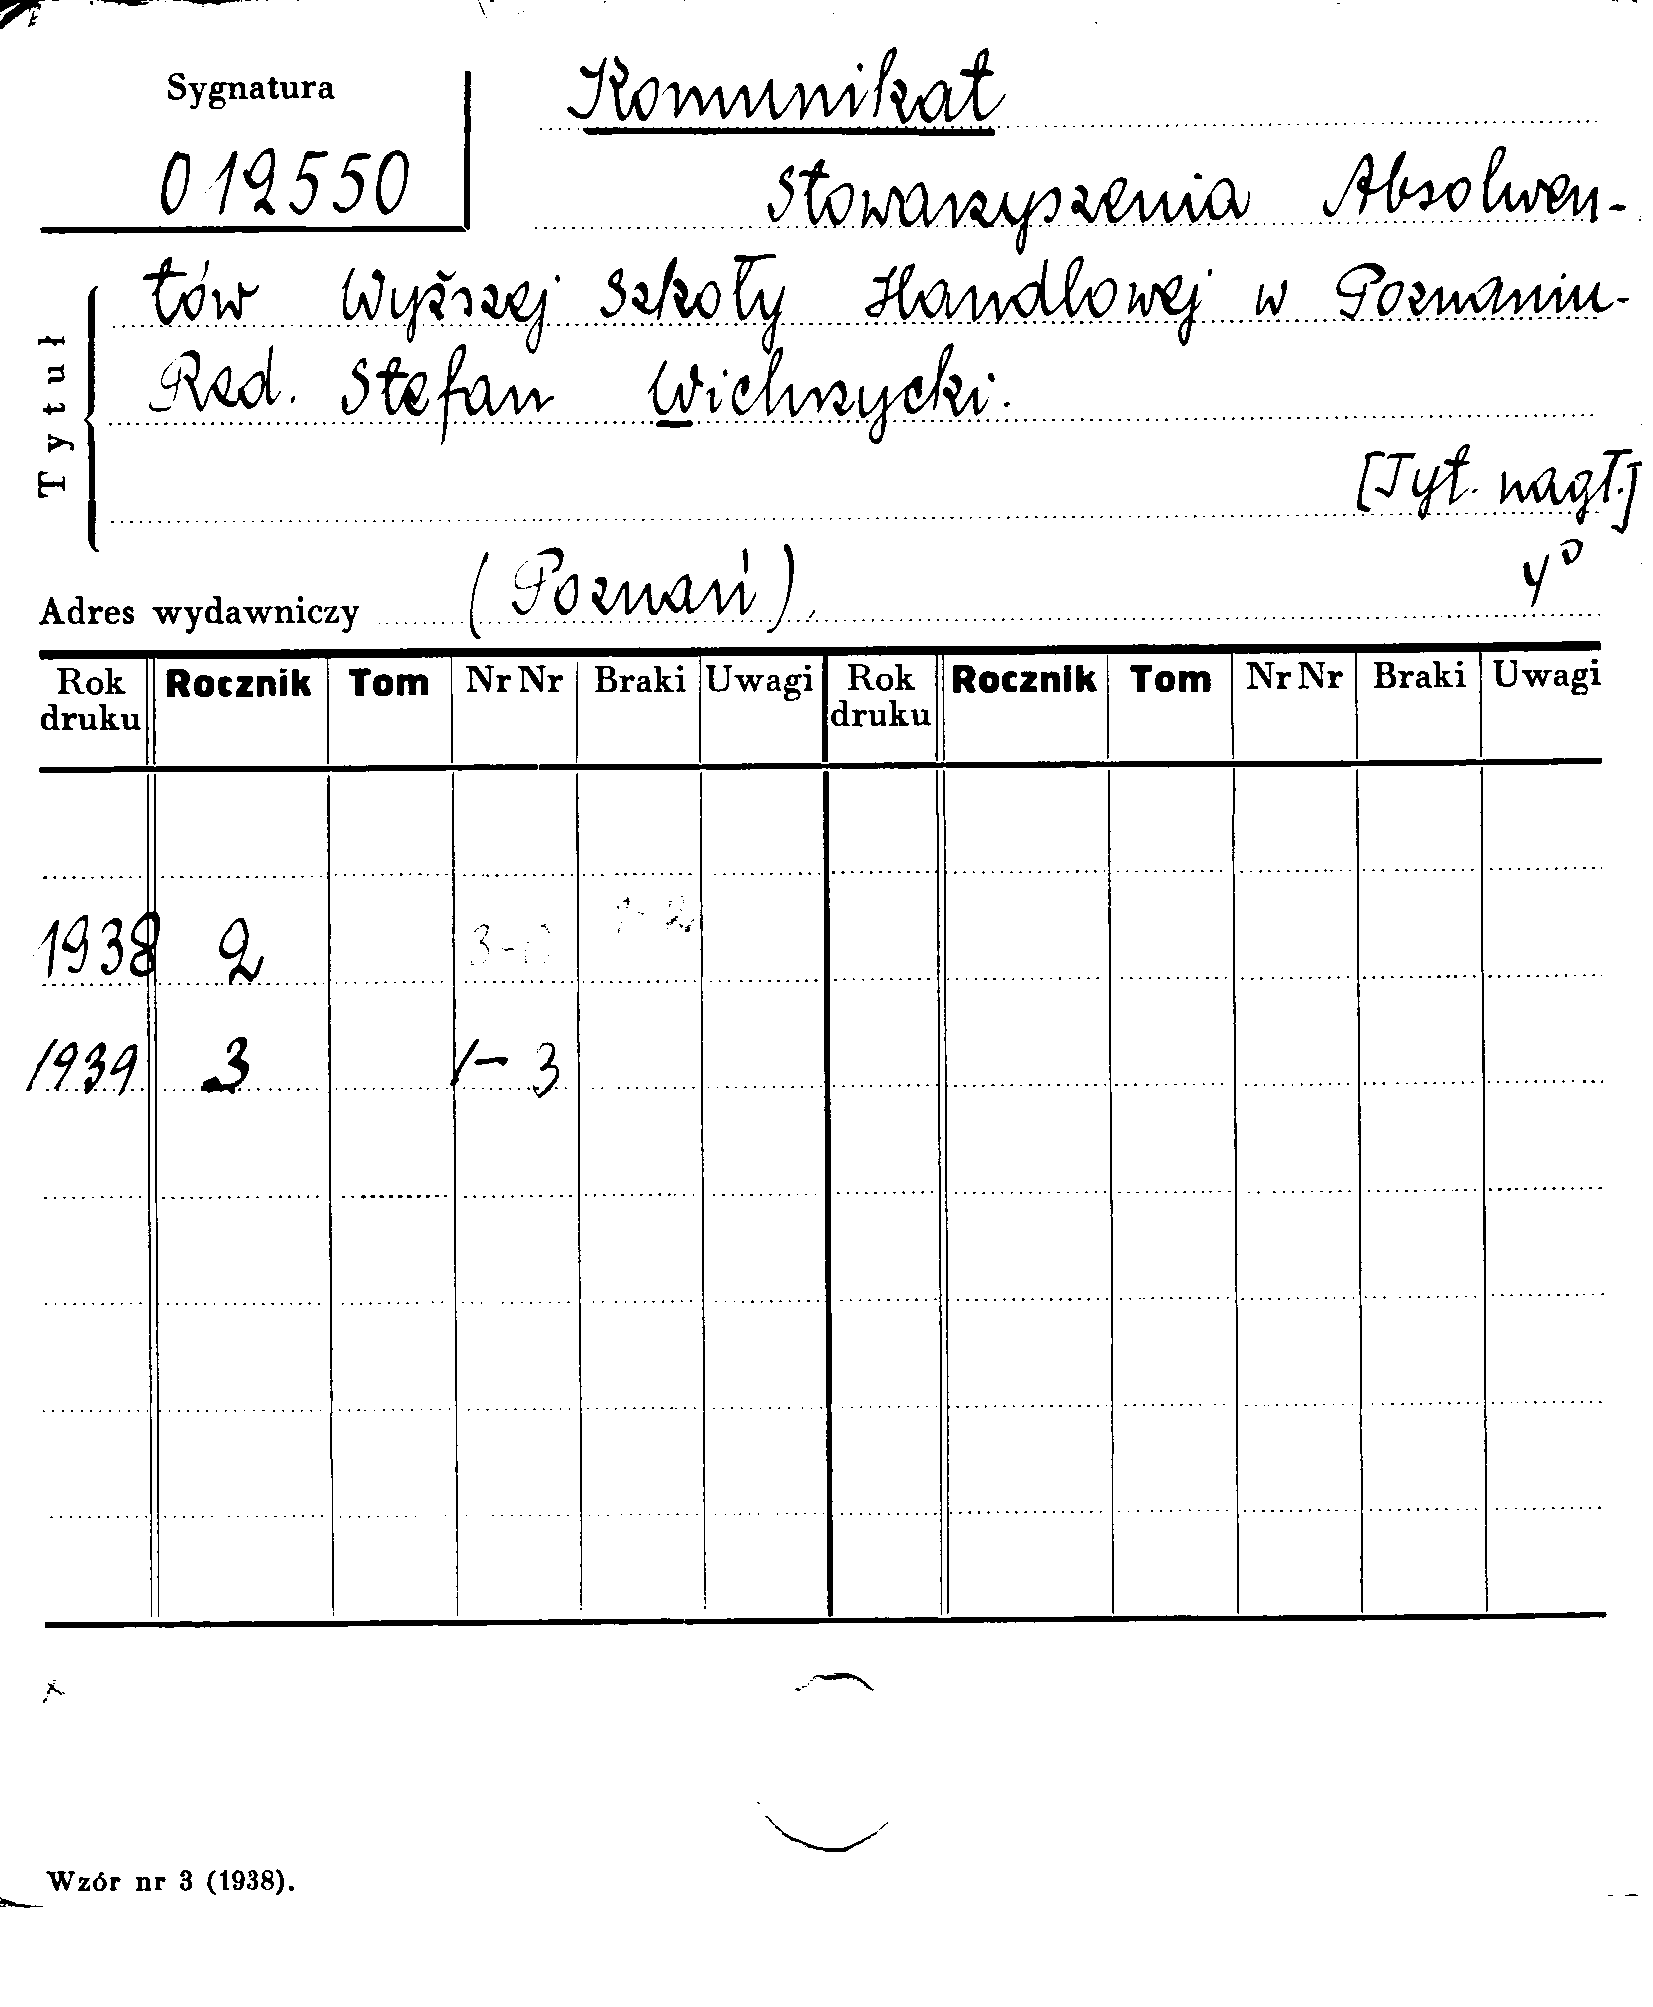 Sygnatura
012550
Komunikat
Stowarzyszenia Absolwen-
tów Wyższej Szkoły Handlowej w Poznaniu-
Red. Stefan Wichrzycki.
[Tyt. nagł.]
Tytuł
4º
Adres wydawniczy (Poznań).
Rok druku Rocznik Tom Nr Nr Braki Uwagi Rok druku Rocznik Tom Nr Nr Braki Uwagi
1938 2
1939 3 1-3
Wzór nr 3 (1938).